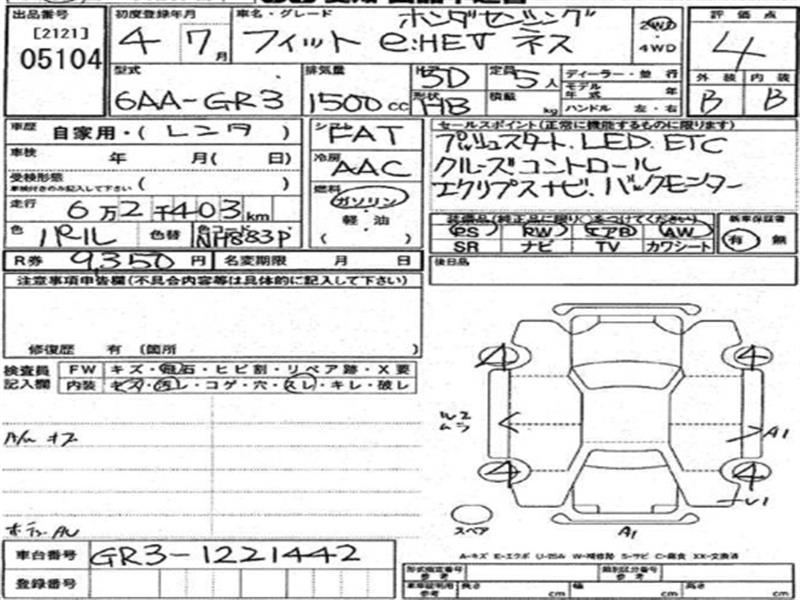 出品番号 初度登録年月 車名・グレード ホンダセンシング 2WD 評価点
[2121]
05104 4年 7月 フィット e:HEV ネス 4WD 4
型式 排気量 3D 定員 5人 ディーラー・並行 外装 内装
6AA-GR3 1500cc 形状 HB 積載 kg モデル年式 年 B B
ハンドル 左・右
車歴 自家用・(レンタ) シフト FAT セールスポイント(正常に機能するものに限ります)
車検 年 月( 日) 冷房 AAC プッシュスタート.LED.ETC
受検形態 ( ) クルーズコントロール
車検付きのみ記入して下さい 燃料 ガソリン エクリプスナビ.バックモニター
走行 6万2千403km 軽・油
色 パール 色替 色コード NH883P ( ) 装備品(純正品に限り○をつけてください) 新車保証書
PS PW エアB AW 有 無
SR ナビ TV カワシート
R券 9,350円 名変期限 月 日 後日品
注意事項申告欄(不具合内容等は具体的に記入して下さい)
修復歴 有 (箇所 )
検査員 FW キズ・飛石・ヒビ割・リペア跡・X要
記入欄 内装 キズ・汚れ・コゲ・穴・スレ・キレ・破レ
4 4
A1
A/w キズ
4 4
U1
スペア A1
ボディ AU
A-キズ E-エクボ U-凹み W-補修跡 S-サビ C-腐食 XX-交換済
車台番号 GR3-1221442
型式指定番号 参考 類別区分番号 参考
登録番号 車庫証明用 参考 長さ cm 幅 cm 高さ cm